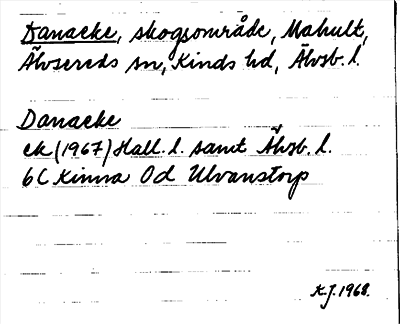 Danacke, skogsområde, Mahult,
Älvsereds sn, Kinds hd, Älvsb. l.
Danacke
ek (1967) Hall. l. samt Älvsb. l.
6C Kinna 0d Ulvanstorp
K.J. 1968.